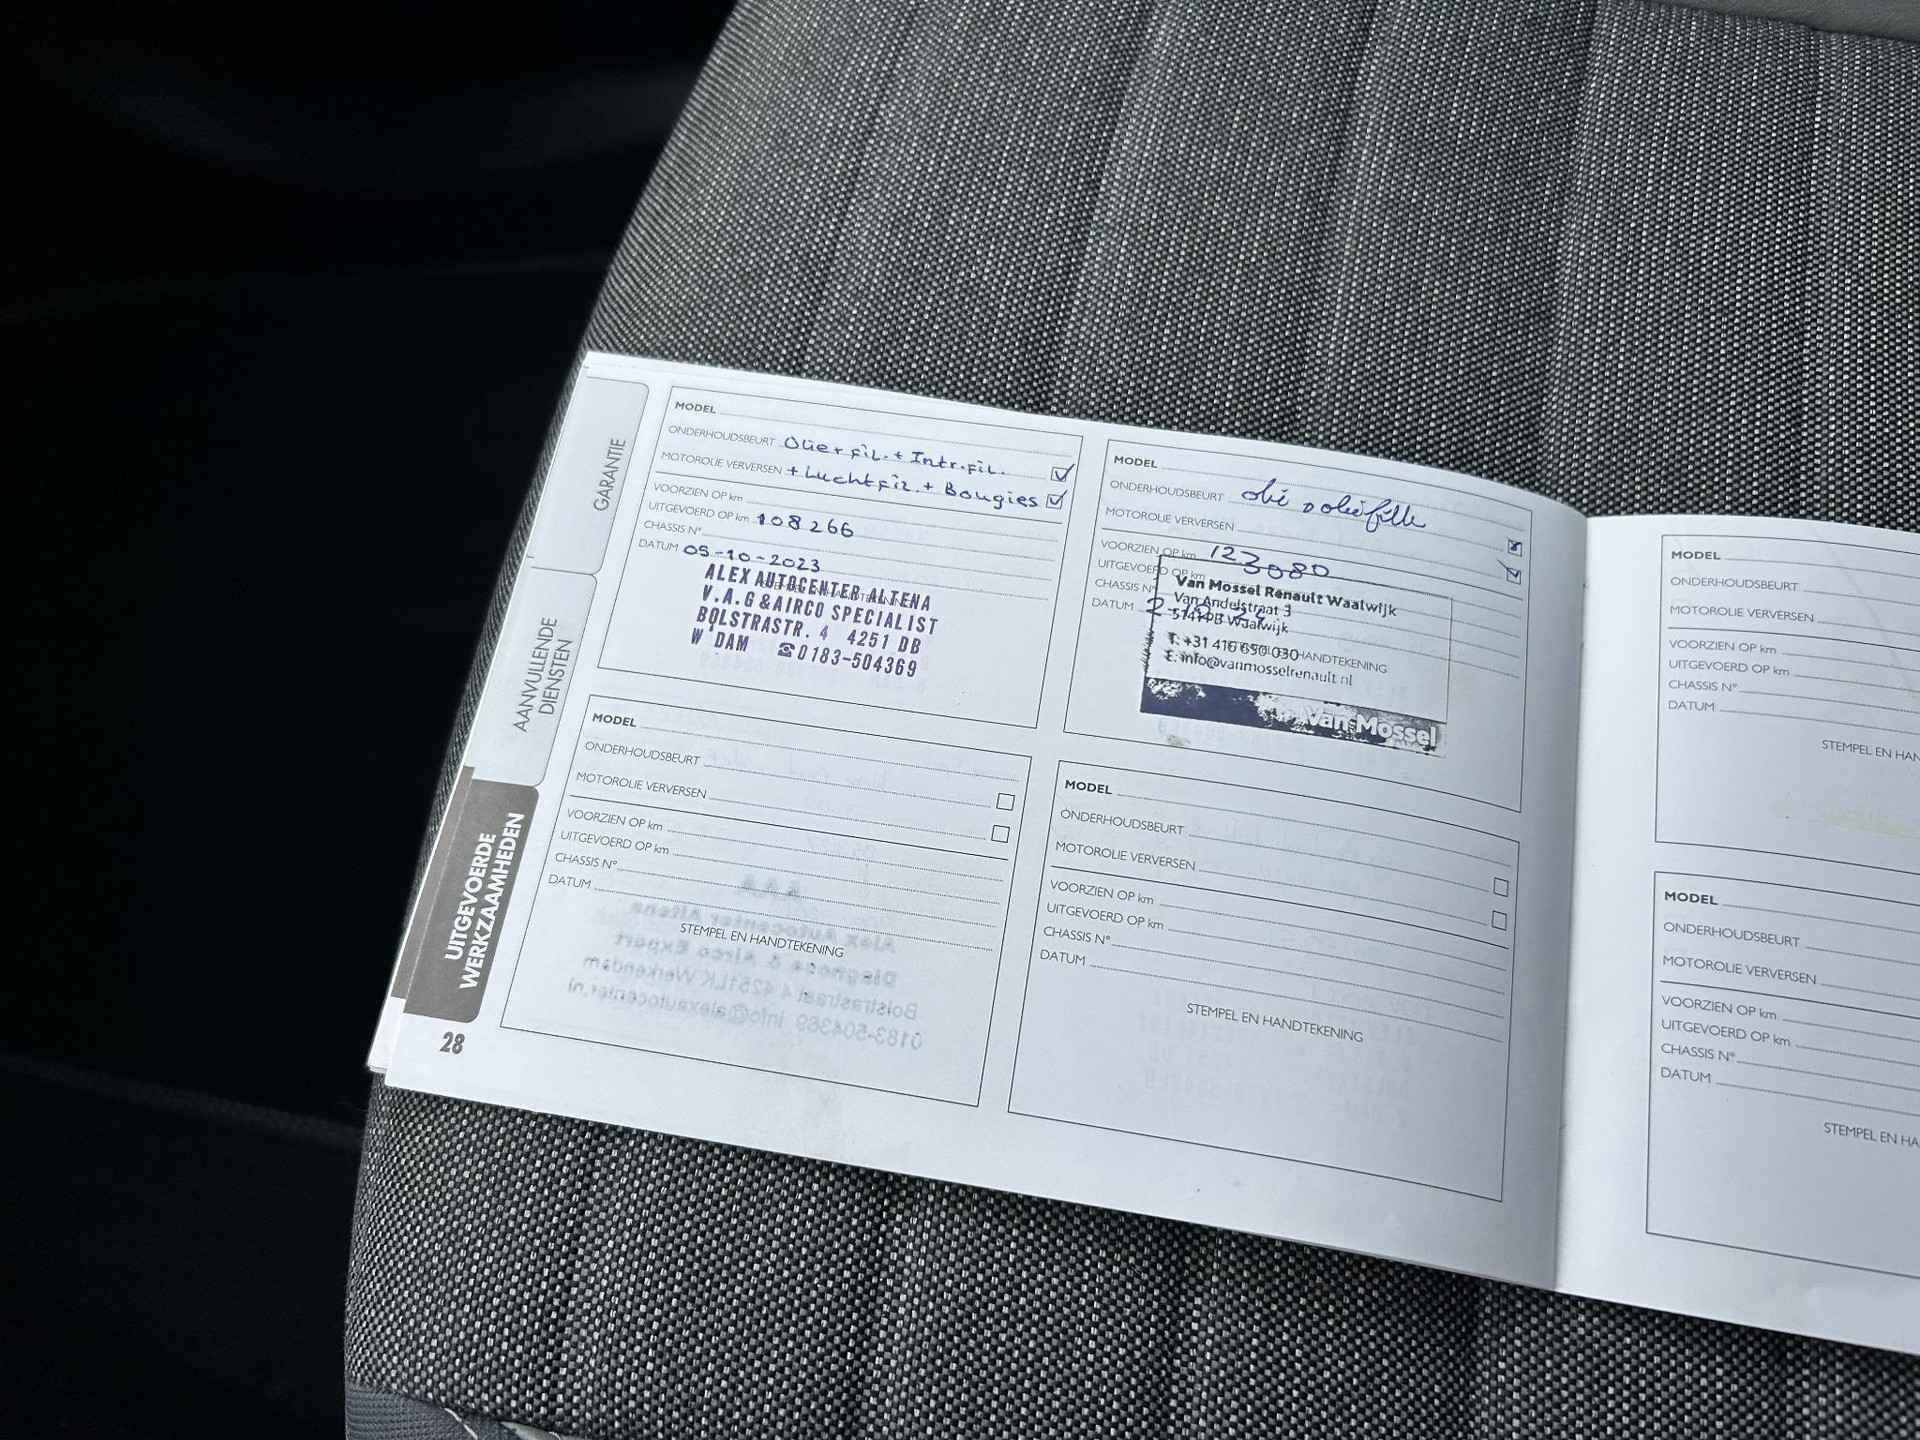 GARANTIE
AANVULLENDE
DIENSTEN
UITGEVOERDE
WERKZAAMHEDEN
28
MODEL
ONDERHOUDSBEURT Olie + fil. + Intr.fil.
MOTOROLIE VERVERSEN + Luchtfil. + Bougies
VOORZIEN OP km
UITGEVOERD OP km 108266
CHASSIS N°
DATUM 05-10-2023
ALEX AUTOCENTER ALTENA
V.A.G & AIRCO SPECIALIST
BOLSTRASTR. 4 4251 DB
W'DAM ☎0183-504369
MODEL
ONDERHOUDSBEURT olie
MOTOROLIE VERVERSEN
VOORZIEN OP km 123080
UITGEVOERD OP km
CHASSIS N°
DATUM
Van Mossel Renault Waalwijk
Van Andelstraat 3
Waalwijk
T: +31 416 650 030
HANDTEKENING
E: info@vanmosselrenault.nl
Van Mossel
MODEL
ONDERHOUDSBEURT
MOTOROLIE VERVERSEN
VOORZIEN OP km
UITGEVOERD OP km
CHASSIS N°
DATUM
STEMPEL EN HANDTEKENING
MODEL
ONDERHOUDSBEURT
MOTOROLIE VERVERSEN
VOORZIEN OP km
UITGEVOERD OP km
CHASSIS N°
DATUM
STEMPEL EN HANDTEKENING
MODEL
ONDERHOUDSBEURT
MOTOROLIE VERVERSEN
VOORZIEN OP km
UITGEVOERD OP km
CHASSIS N°
DATUM
STEMPEL EN HAN
MODEL
ONDERHOUDSBEURT
MOTOROLIE VERVERSEN
VOORZIEN OP km
UITGEVOERD OP km
CHASSIS N°
DATUM
STEMPEL EN HA